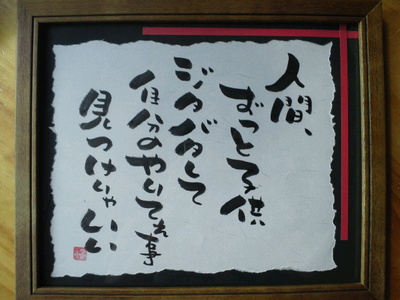 人間、
ずっと子供
ジタバタして
自分のやいてれ事
見つけりゃいい